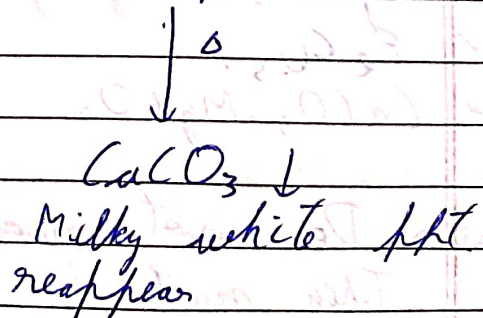 Δ
CaCO₃ ↓
Milky white ppt
reappear